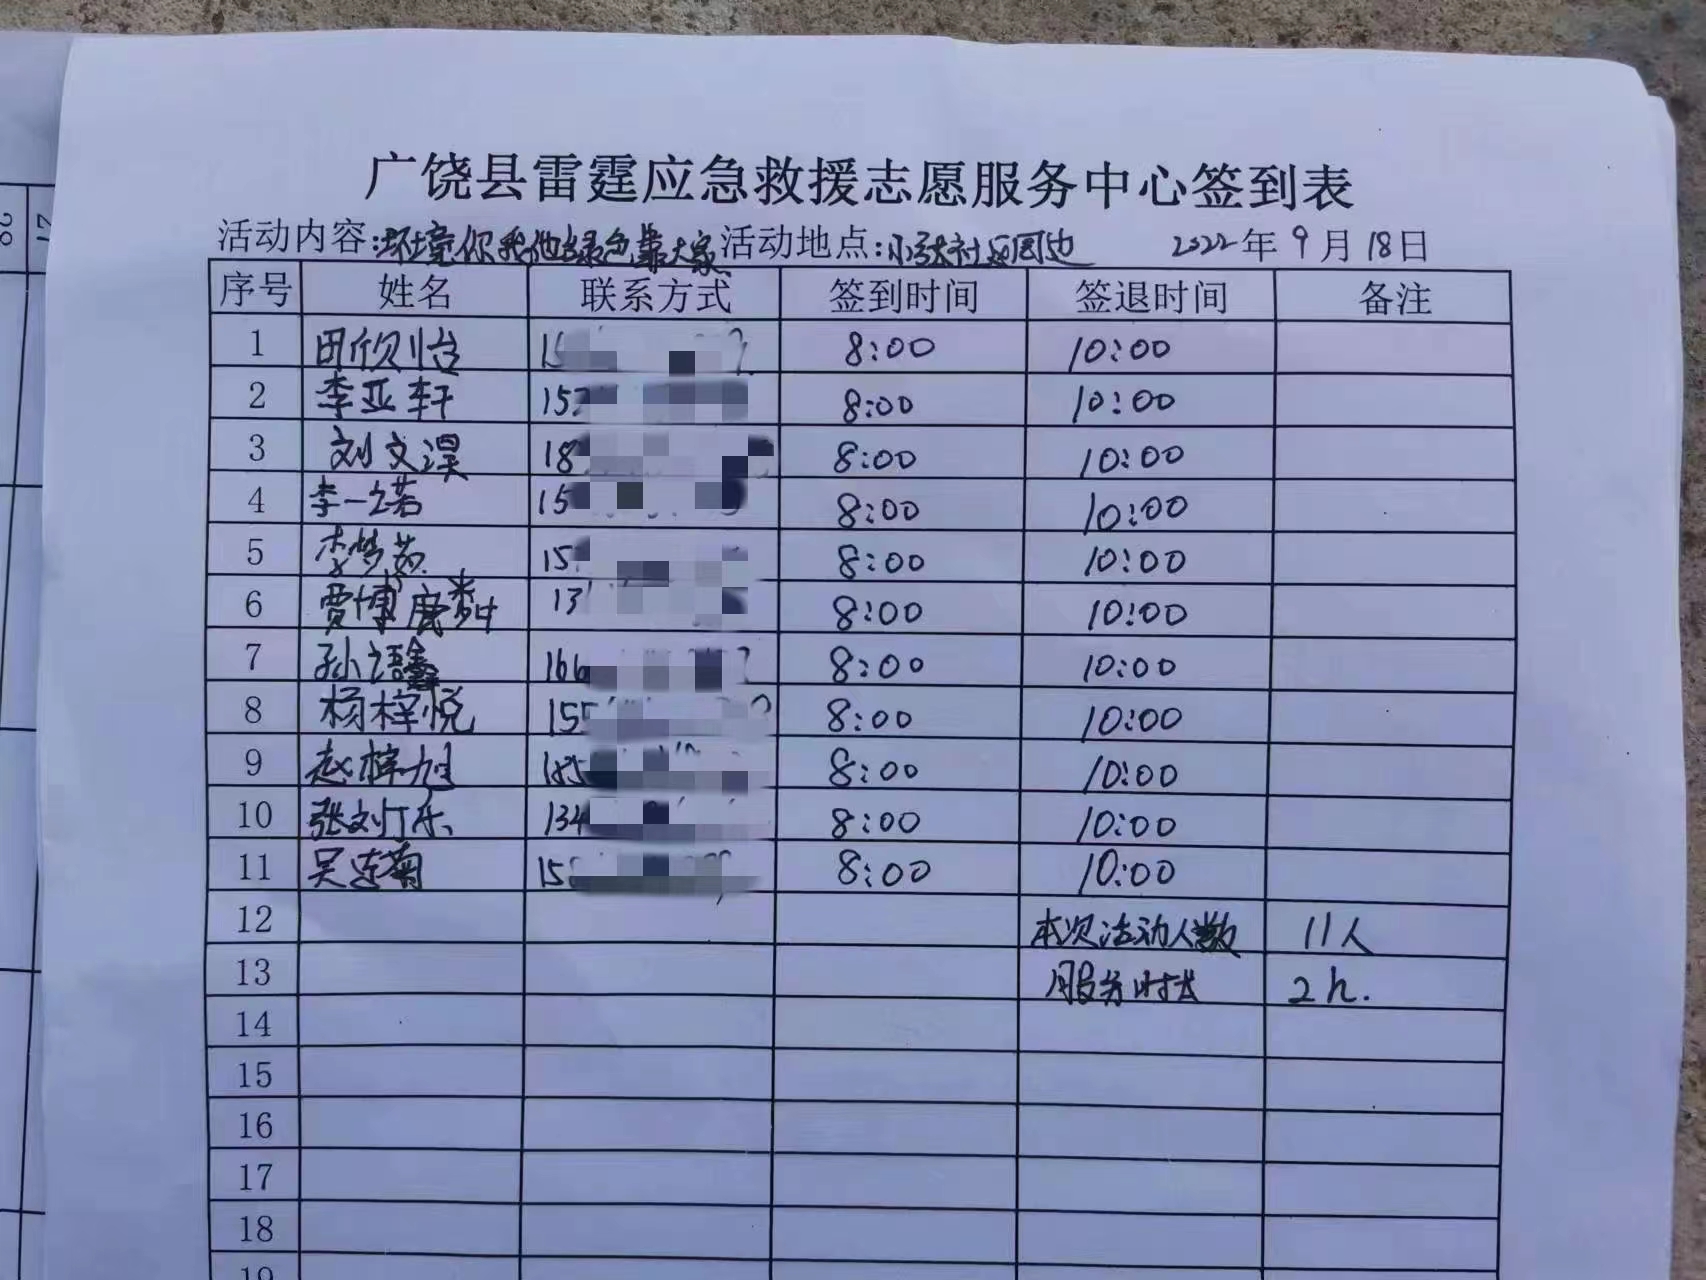 广饶县雷霆应急救援志愿服务中心签到表
活动内容：环境你我他绿色靠大家 活动地点：小张社区周边 2022年9月18日
序号 姓名 联系方式 签到时间 签退时间 备注
1 田欣怡 15 8:00 10:00
2 李亚轩 152 8:00 10:00
3 刘文淏 18 8:00 10:00
4 李一诺 15 8:00 10:00
5 李梦茹 15 8:00 10:00
6 贾博麟 13 8:00 10:00
7 孙语鑫 166 8:00 10:00
8 杨梓悦 155 8:00 10:00
9 赵梓旭 185 8:00 10:00
10 张刘仃乐 134 8:00 10:00
11 吴连菊 15 8:00 10:00
12 本次活动人数 11人
13 服务时长 2h.
14
15
16
17
18
19